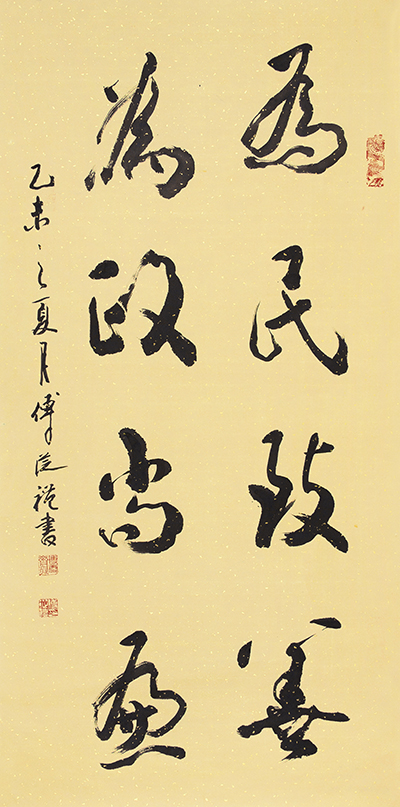 為民致善
為政尚廉
乙未之夏月傅從禮書